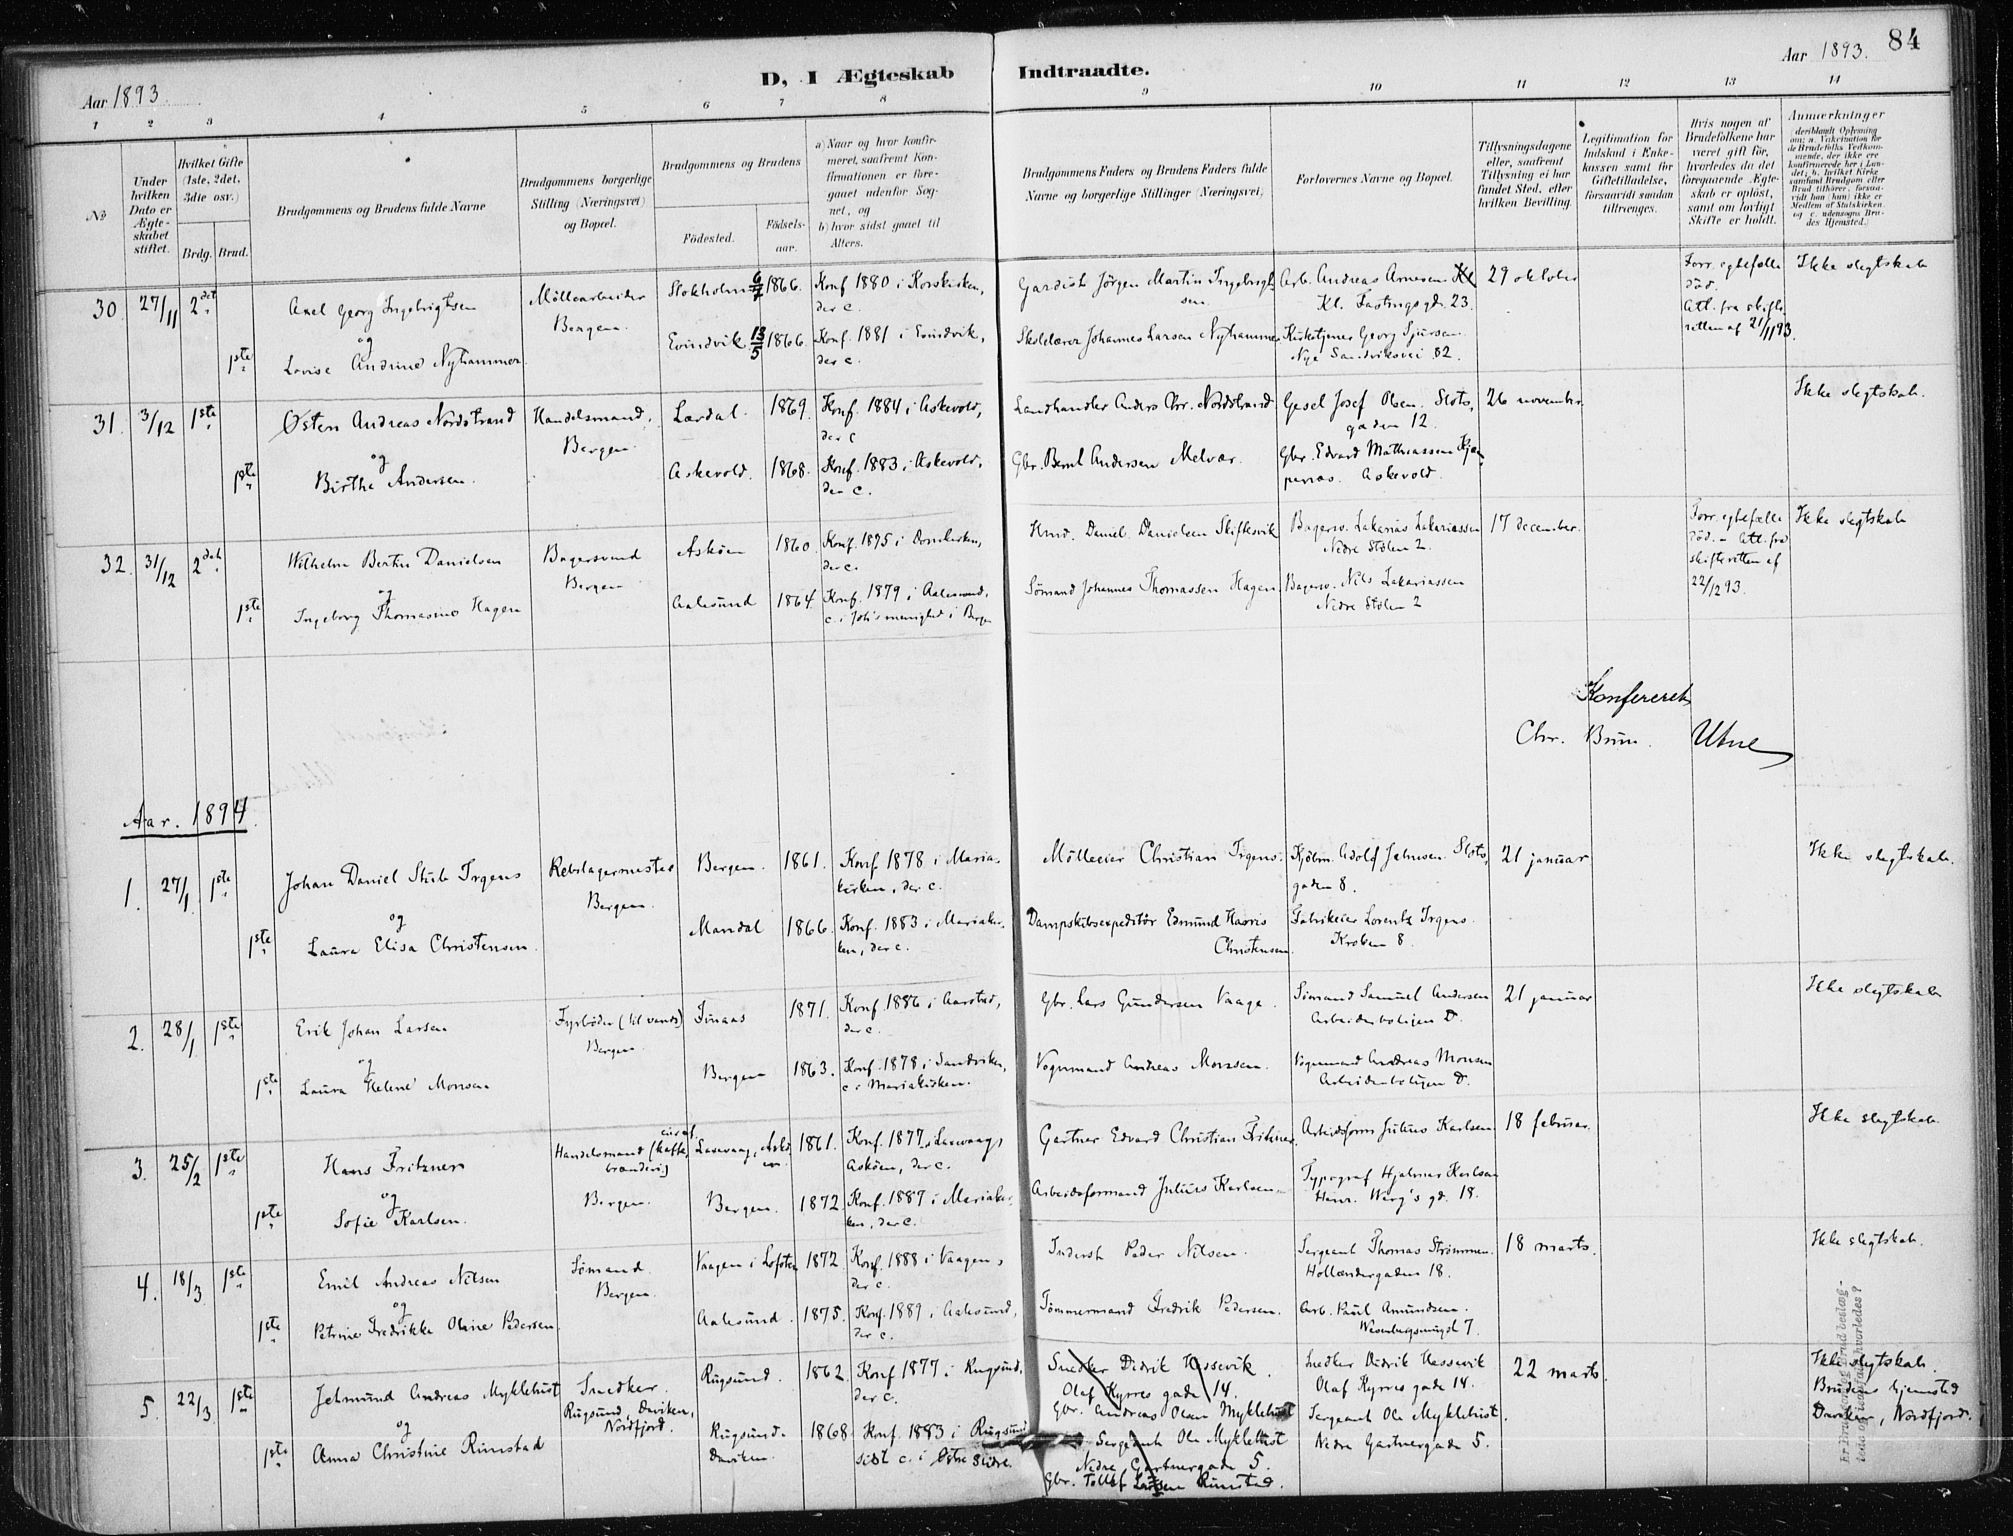 84
D, I Ægteskab Indtraadte.
Aar 1893
Aar 1893.
1 2 3 4 5 6 7 8 9 10 11 12 13 14
No
Under hvilken Dato er Ægteskabet stiftet.
Hvilket Gifte (1ste, 2det, 3die osv.)
Brdg. Brud.
Brudgommens og Brudens fulde Navne
Brudgommens borgerlige Stilling (Næringsvei) og Bopæl.
Brudgommens og Brudens
Fødested. Fødselsaar.
a) Naar og hvor konfirmeret, saafremt Konfirmationen er foregaaet udenfor Sognet, og
b) hvor sidst gaaet til Alters.
Brudgommens Faders og Brudens Faders fulde Navne og borgerlige Stillinger (Næringsvei)
Forlovernes Navne og Bopæl.
Tillysningsdagene eller, saafremt Tillysning ei har fundet Sted, efter hvilken Bevilling.
Legitimation for Indskud i Enkekassen samt for Giftetilladelse, forsaavidt saadan tiltrænges.
Hvis nogen af Brudefolkene har været gift før, hvorledes da det foregaaende Ægteskab er opløst, samt om lovligt Skifte er holdt.
Anmærkninger
30. 27/11 2det
Axel Georg Ingebrigtsen
og
1ste
Lovise Andrine Nyhammer
Møllearbeider
Bergen.
Stokholm 6/7 1866.
Konf 1880 i Korskirken,
der c.
Evindvik 13/5 1866.
Konf. 1881 i Evindvik,
der c.
Gardist Jörgen Martin Ingebrigtsen
Skolelærer Johannes Larsen Nyhammer
Arb. Andreas Arnesen
Kl. Fastings gd. 23.
Kirketjener Georg Sjursen
Nye Sandviksvei 82.
29 oktober
Forr. egtefælle
död.
Att. fra skifte-
retten af 21/11 93.
Ikke slegtskab
31. 3/12 1ste
Østen Andreas Nordstrand
og
1ste
Birthe Andersen.
Handelsmand,
Bergen.
Lærdal. 1869.
Konf. 1884 i Askevold,
der c
Askevold. 1868.
Konf. 1883 i Askevold,
der c.
Landhandler Anders Chr. Nordstrand
Gbr. Bernt Andersen Melvær.
Gesel Josef Olsen. Slots-
gaden 12.
Gbr. Edvard Mathiassen
Askevold.
26 november
Ikke slegtskab.
32. 31/12 2det
Wilhelm Bertin Danielsen
og
1ste
Ingeborg Thomasine Hagen
Bagersvend
Bergen
Asköen 1860.
Konf. 1875 i Domkirken,
der c.
Aalesund 1864.
Konf. 1879 i Aalesund,
c. i Joh's menighed i Bergen
Hmd. Daniel Danielsen Skiftesvik
Sömand Johannes Thomassen Hagen
Bagersv. Zakarias Zakariassen
Nedre Stölen 2.
Bagersv. Nils Zakariassen
Nedre Stölen 2
17 december.
Forr. egtefælle
död. - Att. fra
skifteretten af
22/12 93.
Ikke slegtskab
Konfereret
Chr. Bruun. Utne
Aar. 1894.
1. 27/1 1ste
Johan Daniel Stub Irgens
og
1ste
Laura Elisa Christensen.
Rebslagermester
Bergen.
Bergen. 1861.
Konf. 1878 i Maria-
kirken, der c.
Mandal 1866.
Konf. 1883 i Mariakir-
ken, der c.
Mölleeier Christian Irgens.
Dampskibsexpeditör Edmund Harris
Christensen
Kjöbm. Adolf Jahnsen. Slots-
gaden 8.
Fabrikeier Lorentz Irgens.
Kroken 8.
21 januar
Ikke slegtskab.
2. 28/1 1ste
Erik Johan Larsen
og
1ste
Laura Helene Monsen
Fyrböder (til vands)
Bergen.
1871.
Konf. 1886 i Aarstad,
der c.
Bergen 1863.
Konf. 1878 i Sandviken,
c. i Mariakirken.
Gbr. Lars Gundersen Vaage.
Vognmand Andreas Monsen.
Sömand Samuel Andersen
Arbeiderboligen D.
Vognmand Andreas Monsen
Arbeiderboligen D.
21 januar
Ikke slegtskab
3. 25/2 1ste
Hans Fritzner
og
1ste
Sofie Karlsen.
Handelsmand (kaffe-
brænderi)
Bergen.
Laxevaag, Askö-
en. 1861.
Konf. 1877 i Laxevaag,
Asköen, der c.
Bergen. 1872.
Konf. 1887 i Mariakir-
ken, der c.
Gartner Edvard Christian Fritzner.
Arbeidsformand Julius Karlsen.
Arbeidsform Julius Karlsen
Typograf Hjalmar Karlsen
Henr. Wergs gd. 18.
18 februar.
Ikke slegtskab.
4. 18/3 1ste
Emil Andreas Nilsen
og
1ste
Petrine Fredrikke Oline Pedersen
Sömand
Bergen.
Vaagen i Lofoten 1872.
Konf. 1888 i Vaagen,
der c.
Aalesund. 1875.
Konf. 1889 i Aalesund,
der c.
Inderst Peder Nilsen.
Tömmermand Fredrik Pedersen.
Sergeant Thomas Strömmen.
Hollendergaden 18.
Arb. Paul Amundsen.
Wesenbergsmugd 7.
18 marts.
Ikke slegtskab.
5. 22/3 1ste
Jetmund Andreas Myklebust
og
1ste
Anna Christine Rimstad
Snedker.
Rugsund, Daviken,
Nordfjord.
Rugsund. 1862.
Konf 1877 i Rugsund,
der c.
Rugsund.
Daviken. 1868.
Konf. 1883 i Rugsund
sidst c. i Østre Slidre.
Snedker Didrik Hessevik.
Olaf Kyrres gade 14.
Gbr. Andreas Olsen Myklebust
Sergeant Ole Myklebust
Nedre Gartnergade 5.
Gbr. Tollef Larsen Rimstad.
Snedker Didrik Hessevik
Olaf Kyrres gade 14.
Sergeant Ole Myklebust.
Nedre Gartnergade 5.
22 marts.
Ikke slegtskab.
Brudens hjemsted
Daviken, Nordfjord.